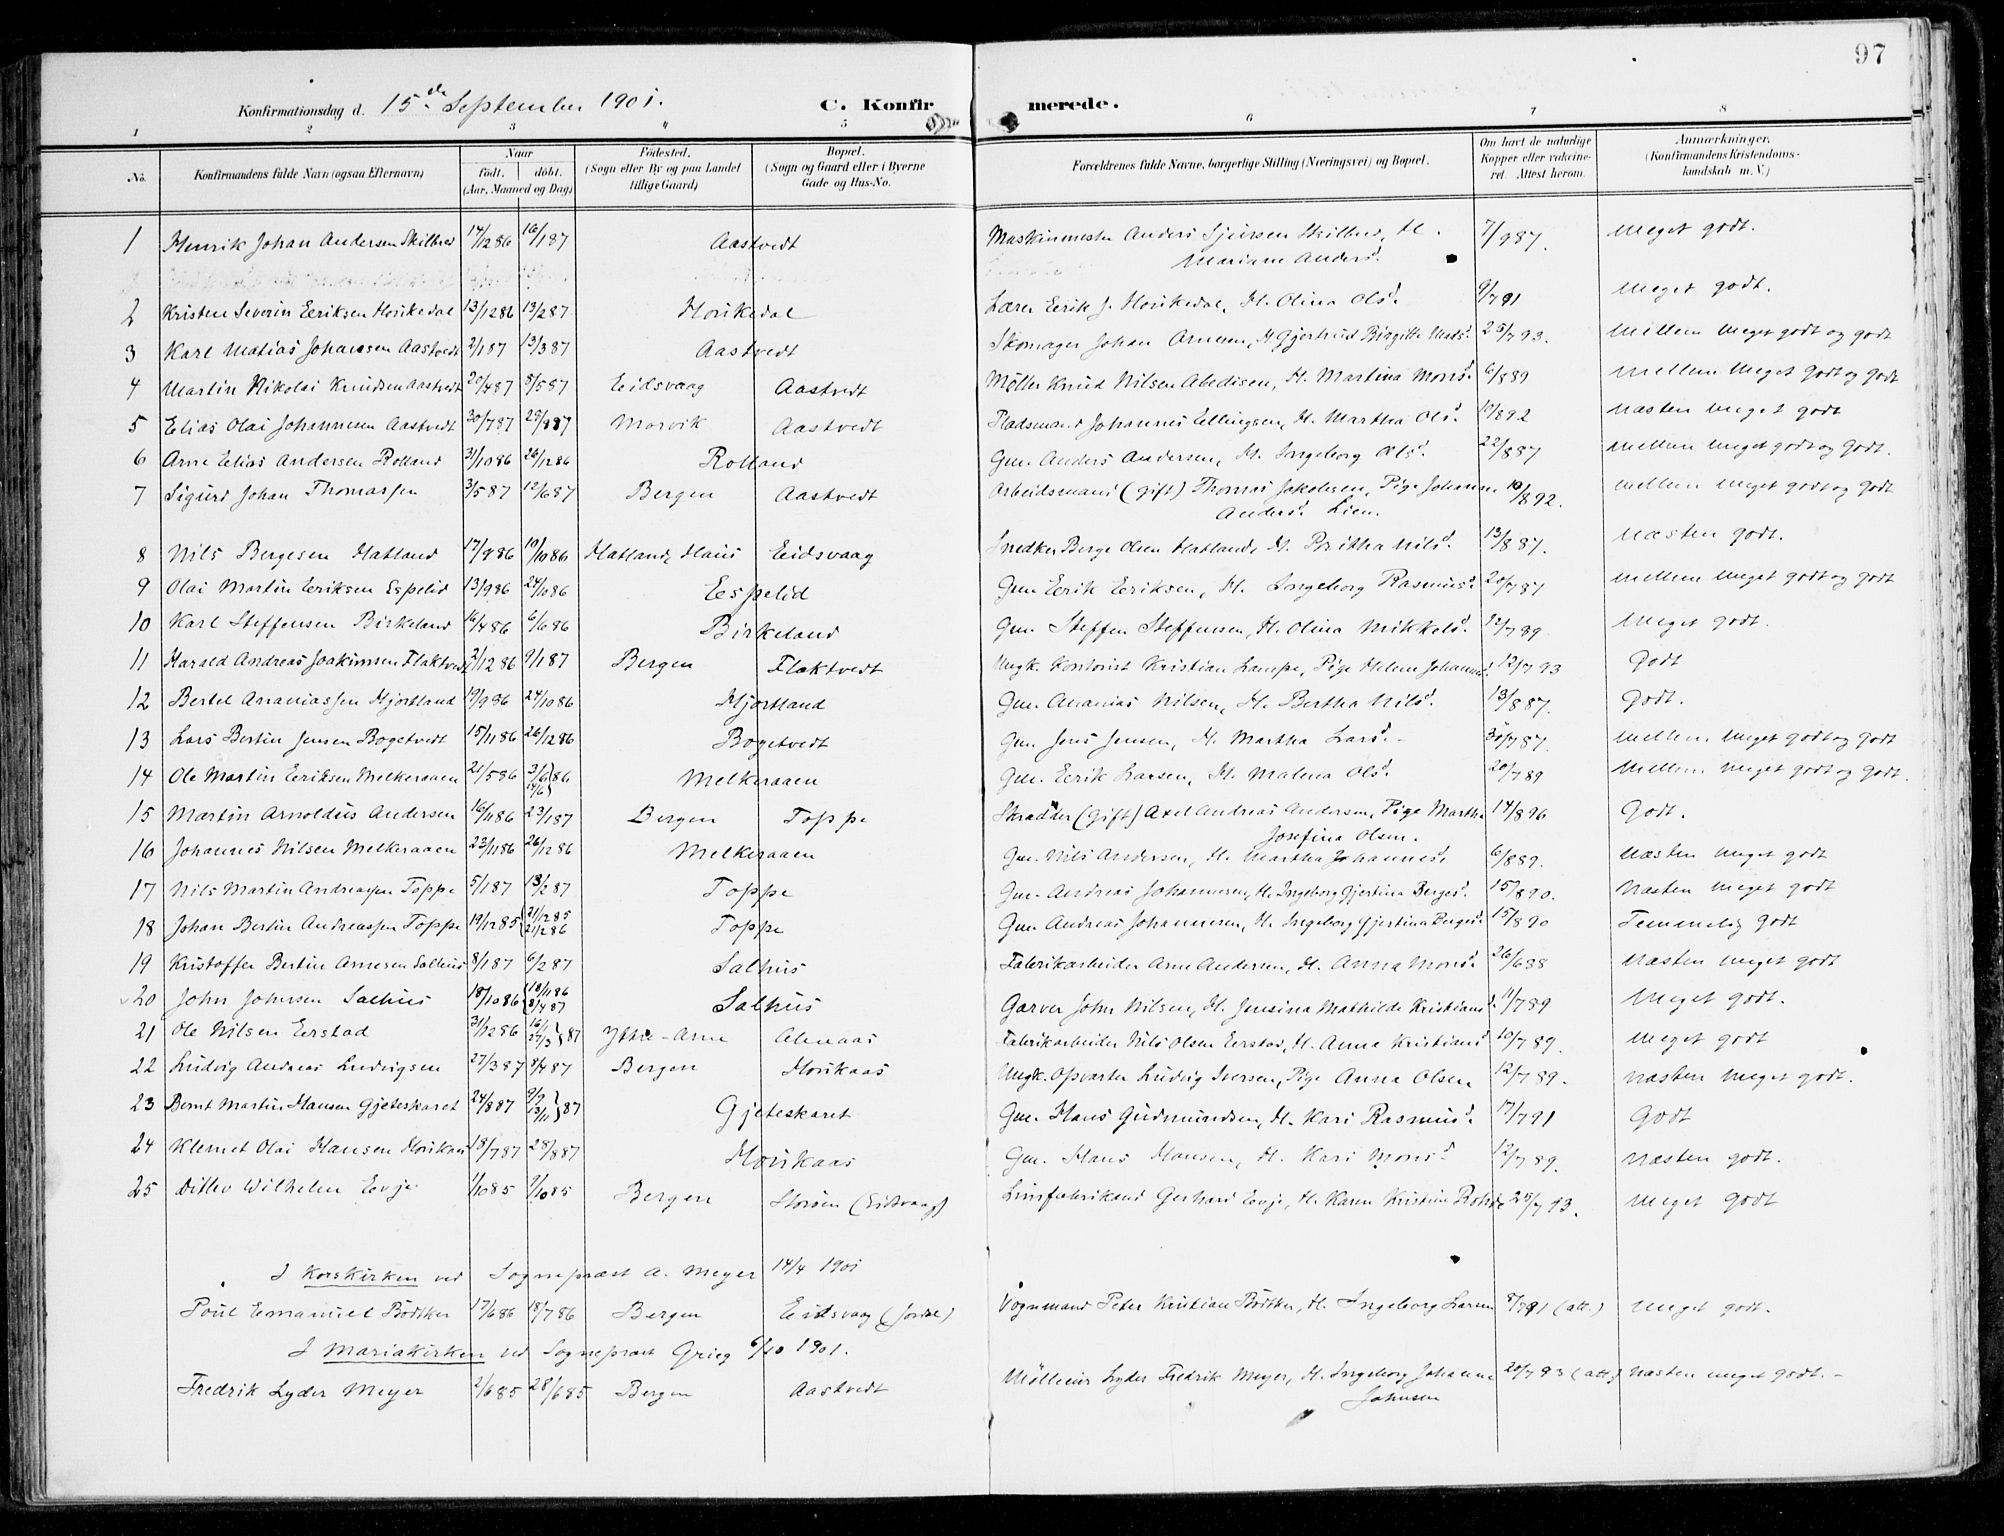 97
Konfirmationsdag d. 15de September 1901. C. Konfirmerede.
1 2 3 " 5 6 7 8
No. Konfirmandens fulde Navn (ogsaa Efternavn) Naar født. døbt. (Aar, Maaned og Dag) Fødested. (Sogn eller By og paa Landet tillige Gaard) Bopæl. (Sogn og Gaard eller i Byerne Gade og Hus-No. Forældrenes fulde Navne, borgerlige Stilling (Næringsvei) og Bopæl. Om havt de naturlige Kopper eller vakcineret. Attest herom. Anmærkninger. (Konfirmandens Kristendomskundskab m. V.)
1 Henrik Johan Andersen Skilbred 14/12 86 16/1 87 Aastvedt Maskinmester Anders Sjursen H. 7/9 87. Meget godt.
Mariane Andersd.
2 Kristen Severin Eeriksen Hordkedal 13/12 86 13/2 87 Lærer Eerik J. H. Olina Olsd. 9/7 91 Meget godt.
3 Karl Matias Johansen Aastvedt 2/1 87 13/3 87 Aastvedt Skomager Johan Arnesen, H. Gjertrud Birgitte 25/7 93. Mellem Meget godt og godt
4 Martin Nikolai Knudsen Aastvedt 20/4 87 8/5 87 Eidsvaag Aastvedt Møller Knud Nilsen H. Martina Monsd. 6/8 89 Mellem Meget godt og godt
5 Elias Olai Johannesen Aastvedt 30/7 87 29/8 87 Morvik Aastvedt Pladsmand Johannes Ellingsen, H. Martha Olsd. 17/8 92 Næsten Meget godt
6 Arne Elias Andersen Rolland 31/10 86 26/12 86 Rolland Gm. Anders Andersen, H. Ingeborg Olsd. 22/8 87 Mellem Meget godt og godt.
7 Sigurd Johan Thomassen 3/5 87 12/6 87 Bergen Aastvedt Arbeidsmand (gift) Thomas Jakobsen, Pige Johanne 10/8 92. Mellem Meget godt og godt
Andersd. Lien.
8 Nils Bergesen Hatland 17/8 86 10/10 86 Hatland, Haus Eidsvaag Snedker Berge Olsen Hatland, H. Britha Nilsd. 13/8 87. Næsten godt.
9 Olai Martin Eeriksen Espelid 13/9 86 24/10 86 Eespelid Gm. Eerik Eeriksen, H. Ingeborg Rasmusd. 20/7 87 Mellem Meget godt og godt
10 Karl Steffensen Birkeland 16/4 86 6/6 86 Birkeland Gm. Steffen Steffensen, H. Olina Mikkelsd. 12/7 89. Meget godt.
11 Harald Andreas Joakimsen Flaktvedt 3/12 86 9/1 87 Bergen Flaktvedt Ungk. Kontorist Kristian Lampe, Pige Helene Johannesd. 12/7 93 Godt
12 Bertel Ananiassen Hjortland 19/9 86 24/10 86 Hjortland Gm. Ananias Nilsen, H. Bertha Nilsd. 13/8 87. Godt.
13 Lars Bertin Jensen Bogetvedt 15/11 86 26/12 86 Bogetvedt Gm. Jens Jensen, H. Martha Larsd. 30/7 87. Mellem Meget godt og godt
14 Ole Martin Eeriksen Melkeraaen 21/5 86 3/6 14/6 } 86 Melkeraaen Gm. Eerik Larsen, H. Malena Olsd. 20/7 89 Mellem Meget godt og godt.
15 Martin Arnoldus Andersen 16/11 86 23/1 87 Bergen Toppe Skrædder (gift) Axel Andreas Andersen, Pige Martha 14/8 96 Godt.
Josefina Olsen.
16 Johannes Nilsen Melkeraaen 23/11 86 26/12 86 Melkeraaen Gm. Nils Andersen, H. Martha Johannesd. 6/8 89. Næsten Meget godt
17 Nils Martin Andreassen Toppe 5/1 87 13/2 87 Toppe Gm. Andreas Johannesen, H. Ingeborg Gjertina Bergesd. 15/8 90. Næsten Meget godt
18 Johan Bertin Andreassen Toppe 19/12 85 { 21/12 85 21/2 86 Toppe Gm. Andreas Johannesen, H. Ingeborg Gjertina Bergesd. 15/8 90 Temmelig godt
19 Kristoffer Bertin Arnesen Salhus 8/1 87 6/2 87 Salhus Fabrikarbeider Arne Andersen, H. Anna Monsd. 26/6 88 Næsten Meget godt
20 John Johnsen Salhus 18/10 86 { 18/11 86 8/4 87 Salhus Garver John Nilsen, H. Jensina Mathilde Kristiansd. 11/7 89 Meget godt.
21 Ole Nilsen Eerstad 31/12 86 16/1 27/3 } 87 Ytre-Arne Alenaas Fabrikarbeider Nils Olsen Eerstad, H. Anna Kristiansd. 10/7 89. Meget godt
22 Ludvig Andreas Ludvigsen 27/3 87 8/4 87 Bergen Horikaas Ungk. Opvarter Ludvig Iversen, Pige Anna Olsen 12/7 89. Næsten Meget godt.
23 Bernt Martin Hansen Gjeteskaret 24/8 87 9/9 13/11 } 87 Gjeteskaret Gm. Hans Gudmundsen, H. Kari Rasmusd. 17/7 91 Godt
24 Klemet Olai Hansen Horikaas 18/7 87 28/8 87 Horikaas Gm. Hans Hansen, H. Kari Monsd. 12/7 89. Næsten godt.
25 Ditlev Wilhelm Eevje 1/10 85 7/10 85 Bergen Storøen (Eidsvaag) Limfabrikant Gerhard Eevje, H. Karen Kristine Rohde 25/7 93. Meget godt
I Korskirken ved Sogneprest A. Meyer 14/4 1901
Poul Emanuel Bödtker 17/6 86 18/7 86 Bergen Eidsvaag (Jordal) Vognmand Peter Kristian Bödtker, H. Ingeborg Larsen 8/7 91 (att.) Meget godt.
I Mariakirken ved Sogneprest Grieg 6/10 1901.
Fredrik Lyder Meyer 2/6 85 28/6 85 Bergen Aastvedt Lyder Fredrik Meyer, H. Ingeborg Johanne 20/7 93 (att.) Næsten meget godt.
Johnsen